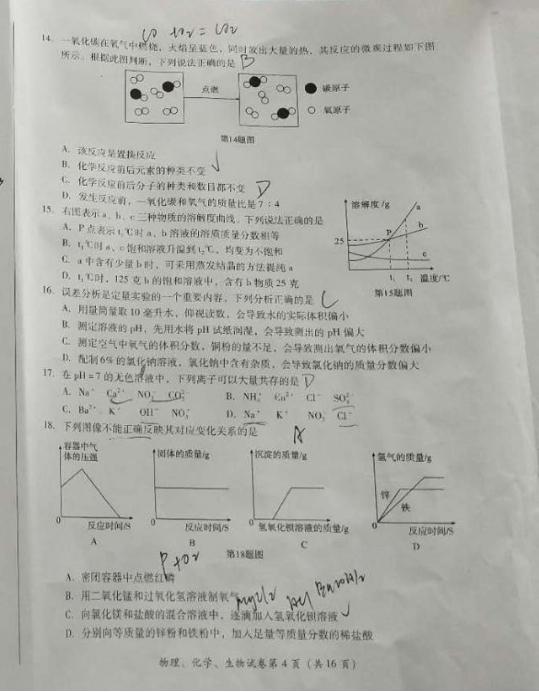 CO + O2 = CO2
14. 一氧化碳在氧气中燃烧，火焰呈蓝色，同时放出大量的热，其反应的微观过程如下图
所示。根据此图判断，下列说法正确的是 B
点燃
碳原子
氧原子
第14题图
A. 该反应是置换反应
B. 化学反应前后元素的种类不变
C. 化学反应前后分子的种类和数目都不变
D. 发生反应前，一氧化碳和氧气的质量比是7：4
15. 右图表示a、b、c三种物质的溶解度曲线，下列说法正确的是 D
A. P点表示t₁℃时a、b溶液的溶质质量分数相等
B. t₁℃时a、c饱和溶液升温到t₂℃，均变为不饱和
C. a中含有少量b时，可采用蒸发结晶的方法提纯a
D. t₁℃时，125克b的饱和溶液中，含有b物质25克
溶解度/g
a
b
P
25
c
0
t₁ t₂ 温度/℃
第15题图
16. 误差分析是定量实验的一个重要内容，下列分析正确的是 C
A. 用量筒量取10毫升水，仰视读数，会导致水的实际体积偏小
B. 测定溶液的pH，先用水将pH试纸润湿，会导致测出的pH偏大
C. 测定空气中氧气的体积分数，铜粉的量不足，会导致测出氧气的体积分数偏小
D. 配制6%的氯化钠溶液，氯化钠中含有杂质，会导致氯化钠的质量分数偏大
17. 在pH=7的无色溶液中，下列离子可以大量共存的是 D
A. Na⁺ Ca²⁺ NO₃⁻ CO₃²⁻ B. NH₄⁺ Cu²⁺ Cl⁻ SO₄²⁻
C. Ba²⁺ K⁺ OH⁻ NO₃⁻ D. Na⁺ K⁺ NO₃⁻ Cl⁻
18. 下列图像不能正确反映其对应变化关系的是 A
容器中气
体的压强
0
反应时间/S
A
固体的质量/g
0
反应时间/S
B
沉淀的质量/g
0
氢氧化钡溶液的质量/g
C
氢气的质量/g
锌
铁
0
反应时间/S
D
第18题图
P+O2
A. 密闭容器中点燃红磷
B. 用二氧化锰和过氧化氢溶液制氧气
MgCl2 HCl Ba(OH)2
C. 向氯化镁和盐酸的混合溶液中，逐滴加入氢氧化钡溶液
D. 分别向等质量的锌粉和铁粉中，加入足量等质量分数的稀盐酸
物理、化学、生物试卷第4页（共16页）